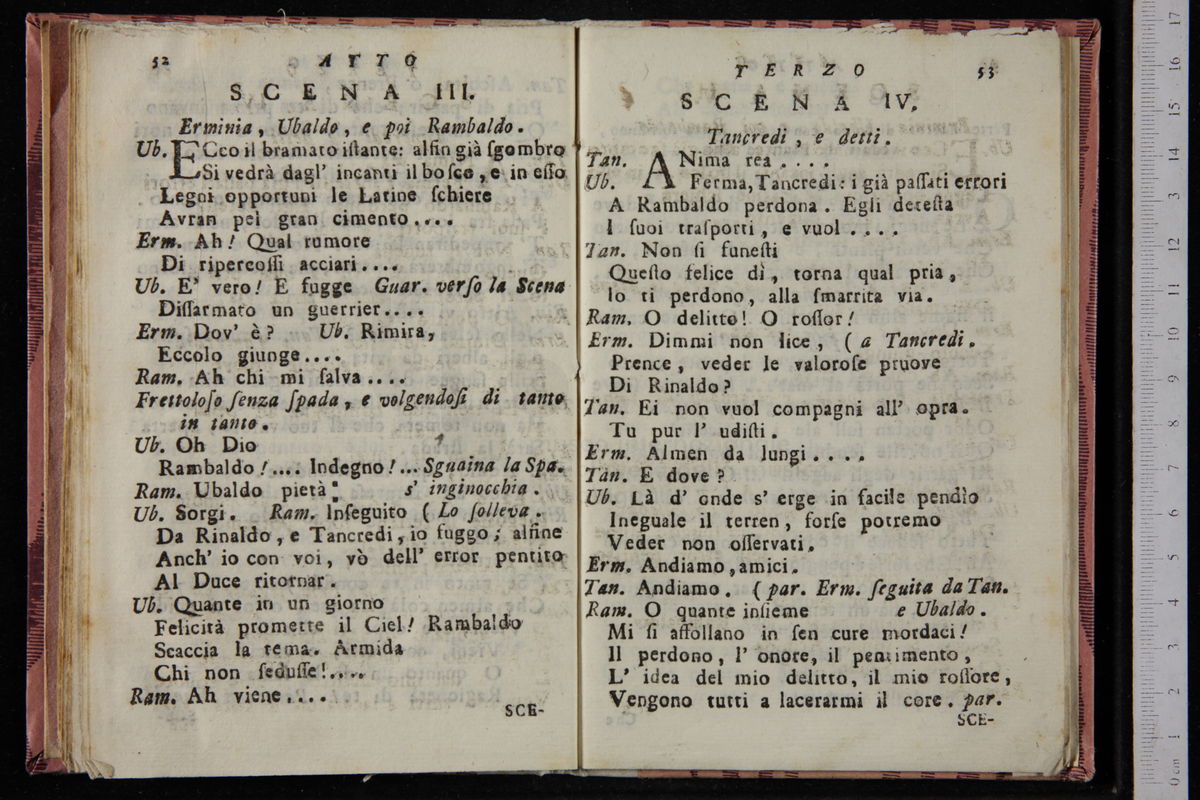 52 ATTO
SCENA III.
Erminia, Ubaldo, e poi Rambaldo.
Ub. ECco il bramato iſtante: alfin già ſgombro
Si vedrà dagl' incanti il boſco, e in eſſo
Legni opportuni le Latine ſchiere
Avran pel gran cimento....
Erm. Ah! Qual rumore
Di ripercoſſi acciari....
Ub. E' vero! E fugge Guar. verſo la Scena
Diſſarmato un guerrier....
Erm. Dov' è? Ub. Rimira,
Eccolo giunge....
Ram. Ah chi mi ſalva....
Frettoloſo ſenza ſpada, e volgendoſi di tanto
in tanto.
Ub. Oh Dio
Rambaldo!.... Indegno!... Sguaina la Spa.
Ram. Ubaldo pietà: s' inginocchia.
Ub. Sorgi. Ram. Inſeguito ( Lo ſolleva.
Da Rinaldo, e Tancredi, io fuggo; alfine
Anch' io con voi, vò dell' error pentito
Al Duce ritornar.
Ub. Quante in un giorno
Felicità promette il Ciel! Rambaldo
Scaccia la tema. Armida
Chi non ſeduſſe!....
Ram. Ah viene....
SCE-
TERZO 53
SCENA IV.
Tancredi, e detti.
Tan. ANima rea....
Ub. Ferma, Tancredi: i già paſſati errori
A Rambaldo perdona. Egli deteſta
I ſuoi traſporti, e vuol....
Tan. Non ſi funeſti
Queſto felice dì, torna qual pria,
Io ti perdono, alla ſmarrita via.
Ram. O delitto! O roſſor!
Erm. Dimmi non lice, ( a Tancredi.
Prence, veder le valoroſe pruove
Di Rinaldo?
Tan. Ei non vuol compagni all' opra.
Tu pur l' udiſti.
Erm. Almen da lungi....
Tan. E dove?
Ub. Là d' onde s' erge in facile pendìo
Ineguale il terren, forſe potremo
Veder non oſſervati.
Erm. Andiamo, amici.
Tan. Andiamo. ( par. Erm. ſeguita da Tan.
Ram. O quante inſieme e Ubaldo.
Mi ſi affollano in ſen cure mordaci!
Il perdono, l' onore, il pentimento,
L' idea del mio delitto, il mio roſſore,
Vengono tutti a lacerarmi il core. par.
SCE-
0 cm 1 2 3 4 5 6 7 8 9 10 11 12 13 14 15 16 17